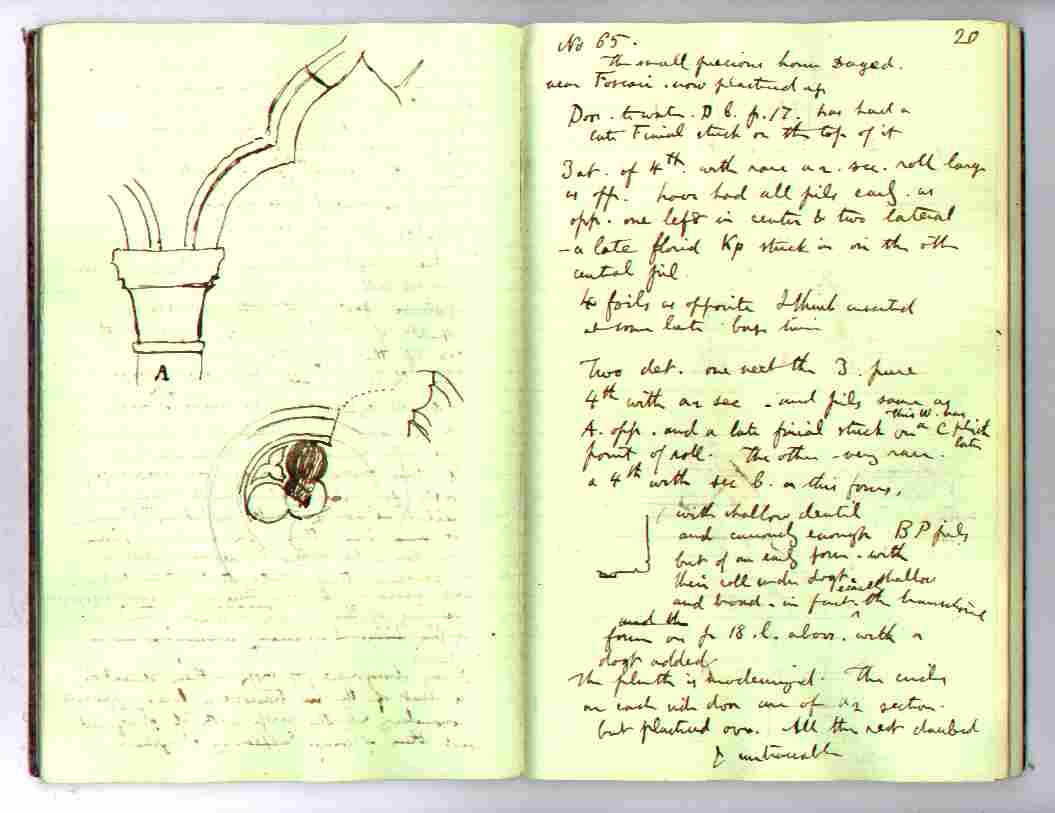 A
20
No 65.
The small precious house Dayed.
near Foscari. now plastered up
Door. to water. D 6. p. 17. has had a
late Finial stuck on the top of it
3 at. of 4th. with rare a 2. sec. roll large
as opp. have had all pils early. as
opp. one left in center & two lateral
- a late florid Kp stuck in on the oth
central pil.
4 foils as opposite I think inserted
at some late base time
Two det. one next the 3. pure
4th with a 2 sec - and pils same as
A. opp. and a late finial stuck on
this W. has a C plinth late
point of roll. The other - very rare.
a 4th with sec 6. on this form,
with shallow dentil
and curiously enough BP pils
but of an early form. with
their roll under dogt. shallow
and broad. in fact. exactly the transitional
form on p 18. l. above. and the with a
dogt added
The plinth is modernized. The circles
on each side door are of a 2 section.
but plastered over. All the rest daubed
& untraceable